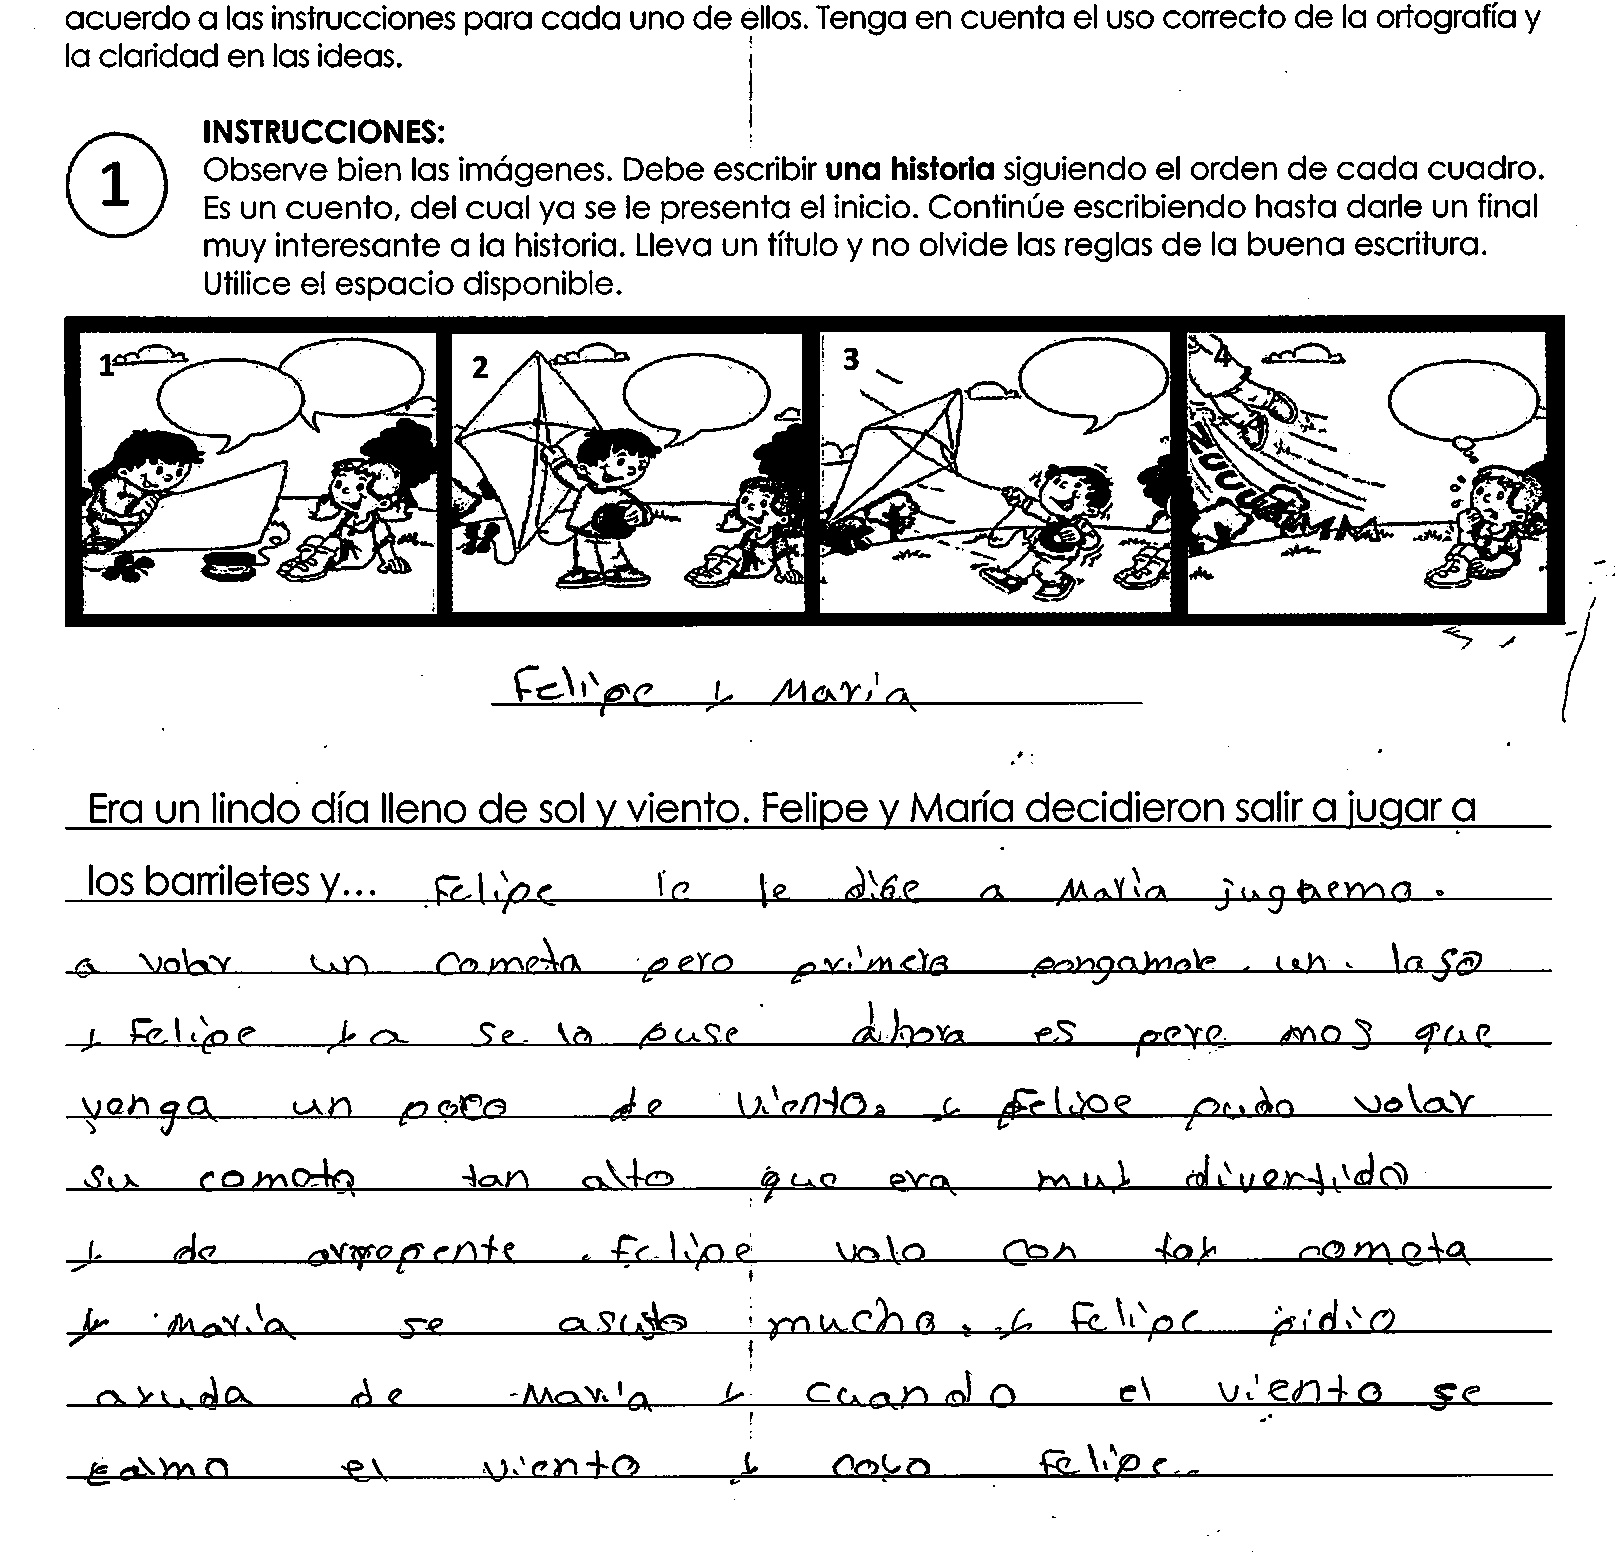 acuerdo a las instrucciones para cada uno de ellos. Tenga en cuenta el uso correcto de la ortografía y
la claridad en las ideas.
INSTRUCCIONES:
1
Observe bien las imágenes. Debe escribir una historia siguiendo el orden de cada cuadro.
Es un cuento, del cual ya se le presenta el inicio. Continúe escribiendo hasta darle un final
muy interesante a la historia. Lleva un título y no olvide las reglas de la buena escritura.
Utilice el espacio disponible.
1 2 3 4
Felipe y María
Era un lindo día lleno de sol y viento. Felipe y María decidieron salir a jugar a
los barriletes y... Felipe le le dise a María
a volar un cometa pero primero un laso
y Felipe ya se lo puse ahora es pere mos que
venga un poco de viento. y Felipe pudo volar
su cometa tan alto que era muy divertido
y de Felipe volo con cometa
y María se asusto mucho. y Felipe pidio
ayuda de María y cuando el viento se
calmo el viento y cayo Felipe..